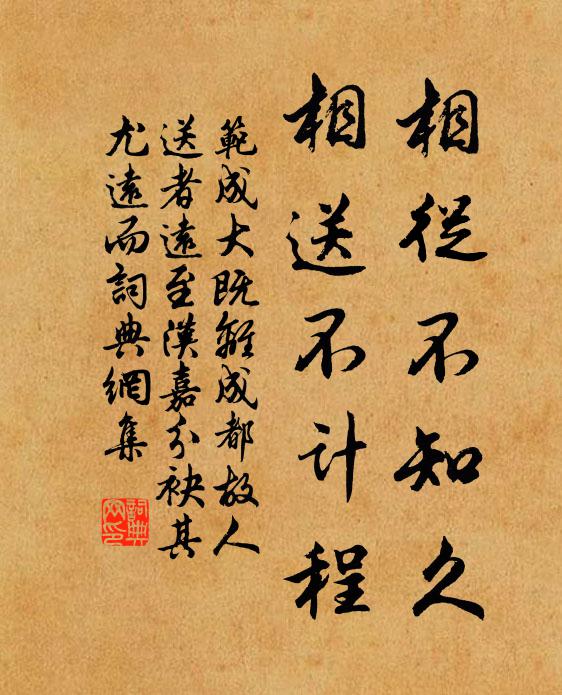 相從不知久
相送不计程
範成大既離成都故人
送者遠至漢嘉分袂其
尤遠而詞典網集
詞典
网印